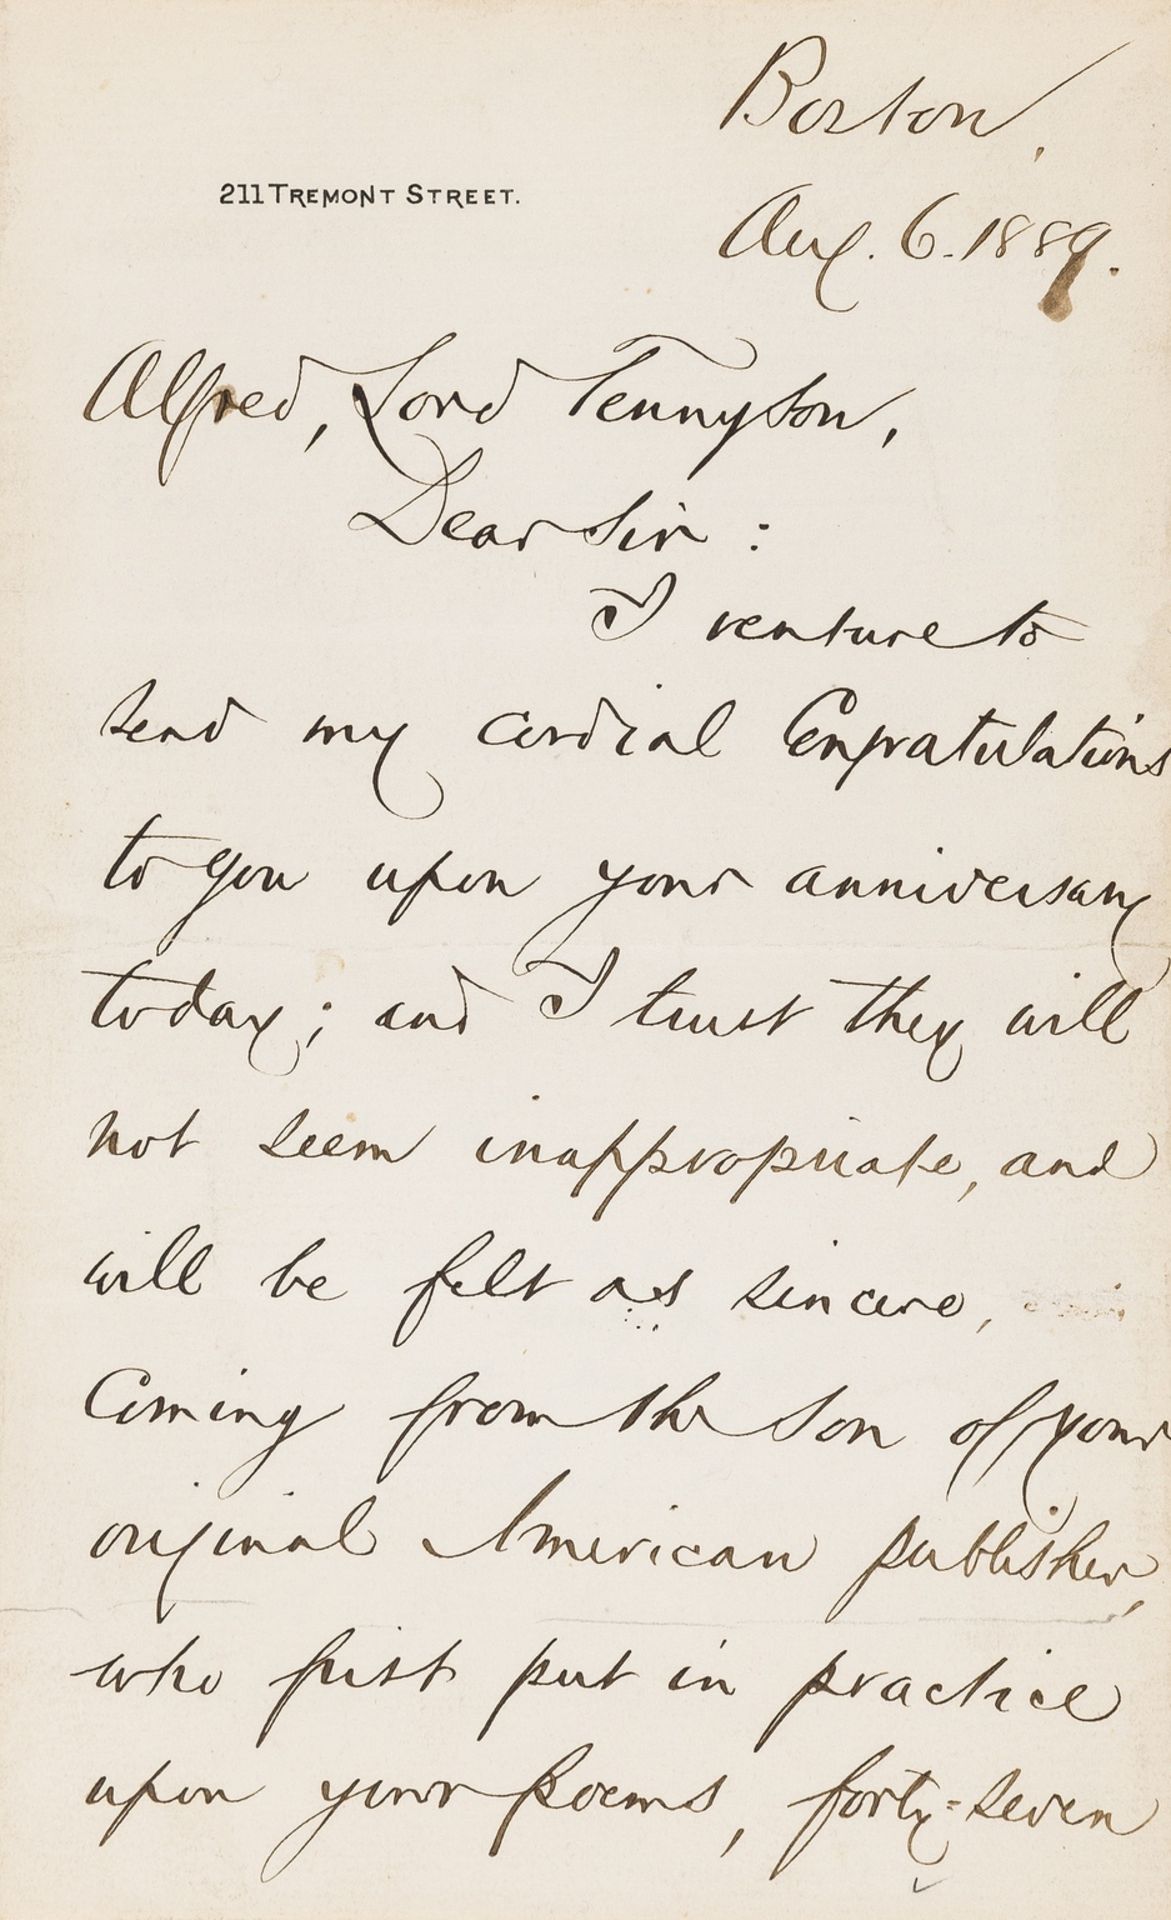 Boston,
211 TREMONT STREET.
Aug. 6. 1889.
Alfred, Lord Tennyson,
Dear Sir :
I venture to
send my cordial Congratulations
to you upon your anniversary
today; and I trust they will
not seem inappropriate, and
will be felt as sincere,
Coming from the son of your
original American publisher,
who first put in practice
upon your poems, forty-seven